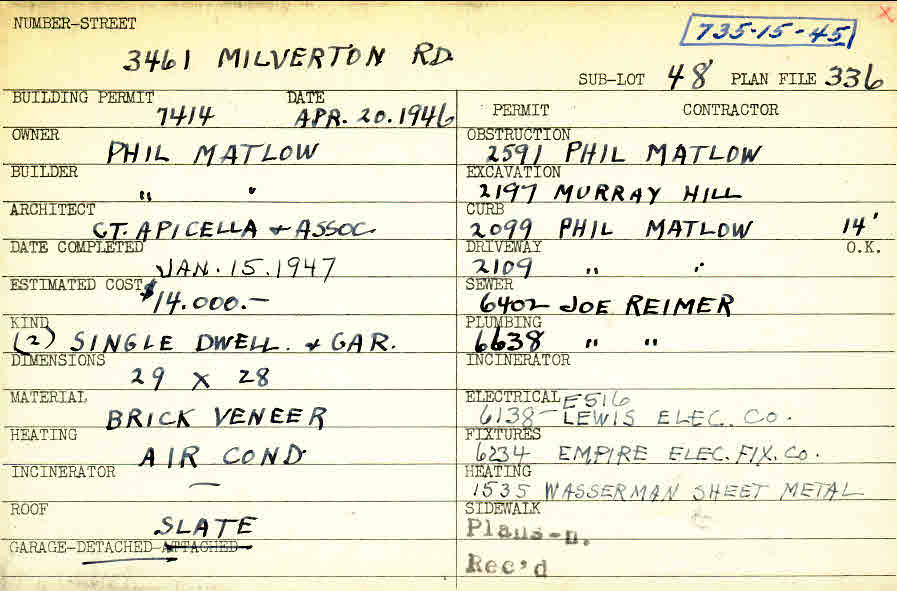 NUMBER-STREET
735-15-45
3461 MILVERTON RD.
SUB-LOT 48 PLAN FILE 336
BUILDING PERMIT DATE
7414 APR. 20. 1946
OWNER
PHIL MATLOW
BUILDER
" "
ARCHITECT
CT. APICELLA + ASSOC.
DATE COMPLETED
JAN. 15. 1947
ESTIMATED COST
$14.000.—
KIND
(2) SINGLE DWELL. + GAR.
DIMENSIONS
29 X 28
MATERIAL
BRICK VENEER
HEATING
AIR COND.
INCINERATOR
—
ROOF
SLATE
GARAGE-DETACHED-ATTACHED
PERMIT CONTRACTOR
OBSTRUCTION
2591 PHIL MATLOW
EXCAVATION
2197 MURRAY HILL
CURB
2099 PHIL MATLOW 14'
DRIVEWAY O.K.
2109 " "
SEWER
6402 JOE REIMER
PLUMBING
6638 " "
INCINERATOR
ELECTRICAL E516
6138- LEWIS ELEC. CO.
FIXTURES
6234 EMPIRE ELEC. FIX. CO.
HEATING
1535 WASSERMAN SHEET METAL
SIDEWALK
Plans-n.
Rec'd